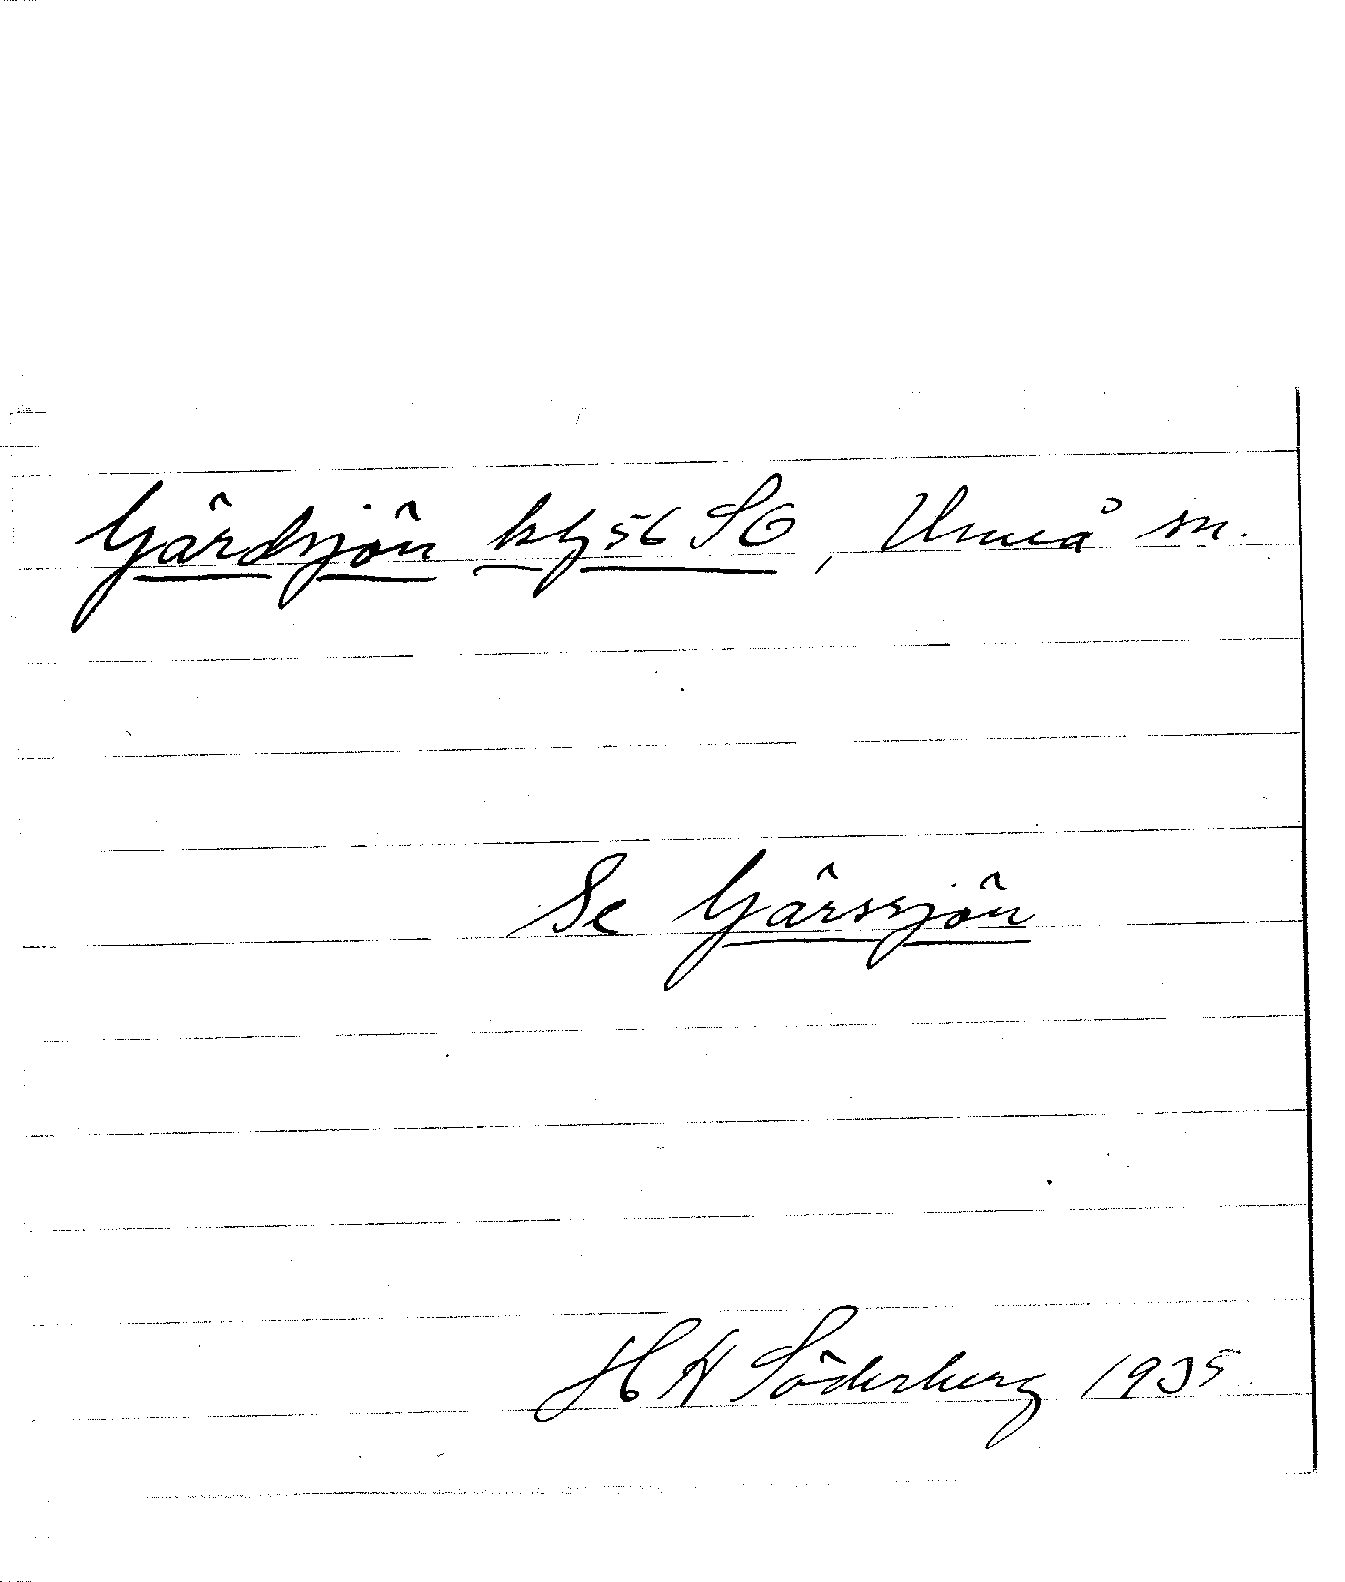 Gärdsjön kbl 56 SO, Umeå sn.
Se Gärssjön
H H Söderberg 1935